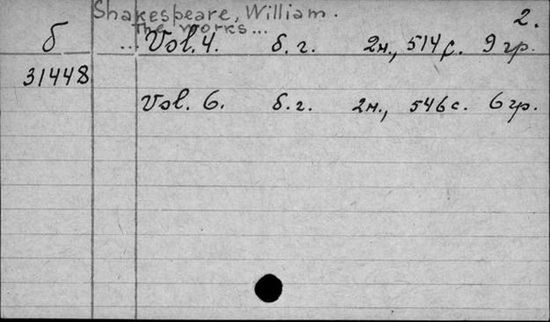 Shakespeare, William.
2.
The works...
б
...Vol. 4. б.г. 2н., 514с. 9 гр.
31448
Vol. 6. б.г. 2н., 546с. 6 гр.